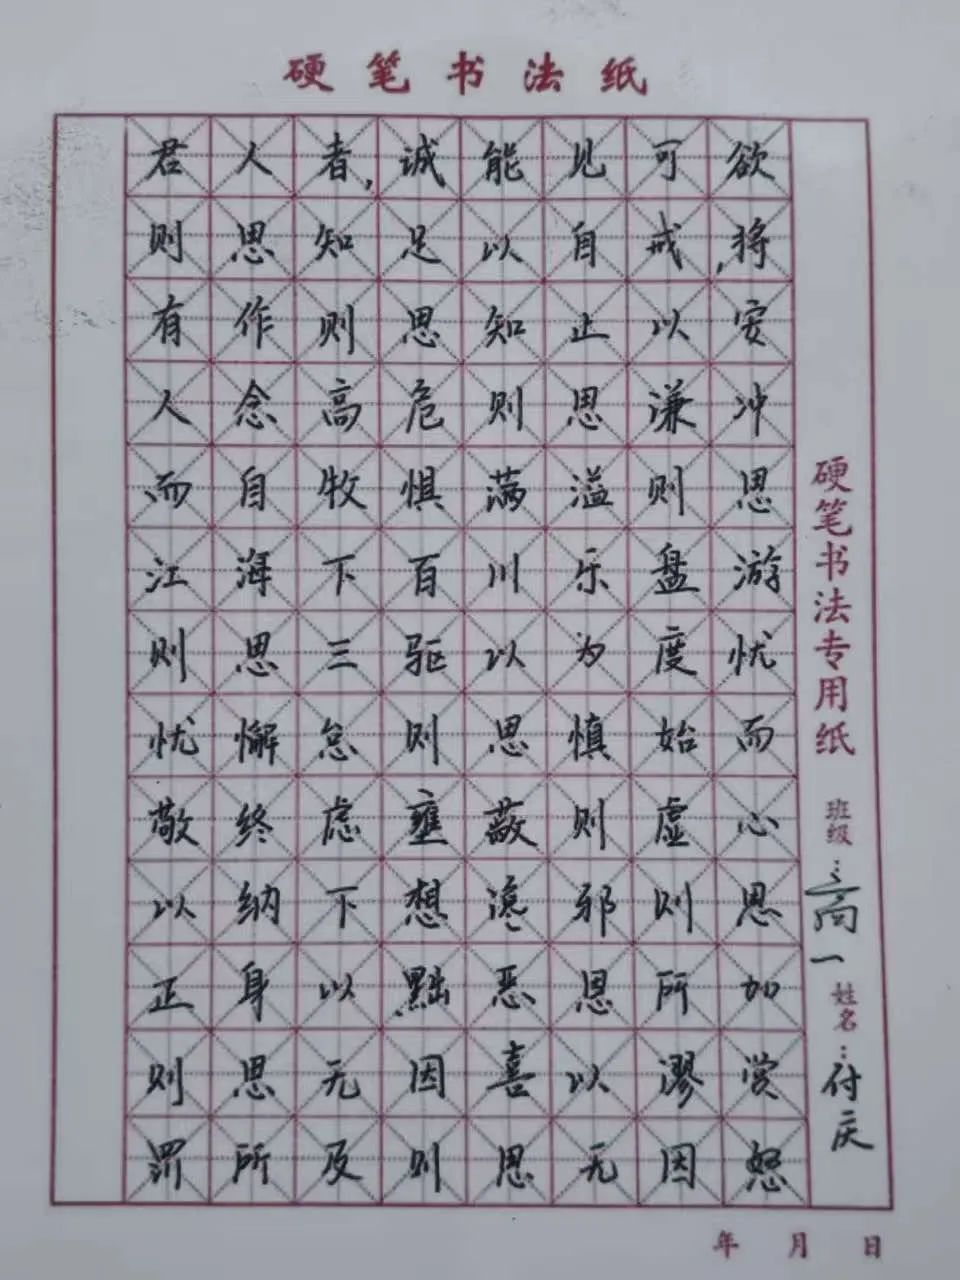 硬笔书法纸
君人者,诚能见可欲
则思知足以自戒,将
有作则思知止以安
人念高危则思谦冲
而自牧惧满溢则思
江海下百川乐盘游
则思三驱以为度忧
忧懈怠则思慎始而
敬终虑壅蔽则虚心
以纳下想谗邪则思
正身以黜恶恩所加
则思无因喜以谬赏
罚所及则思无因怒
硬笔书法专用纸
班级:高一
姓名:付庆
年 月 日